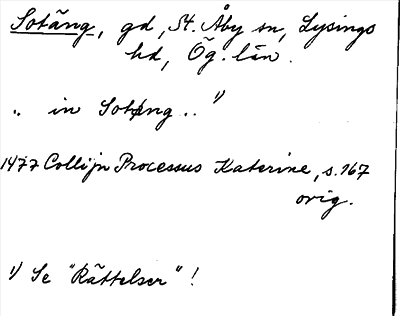 Sotäng, gd, St. Åby sn, Lysings
hd, Ög. län.
„ in Soteng .. 1)
1477 Collijn Processus Katerine, s. 167
orig.
1) Se "Rättelser"!